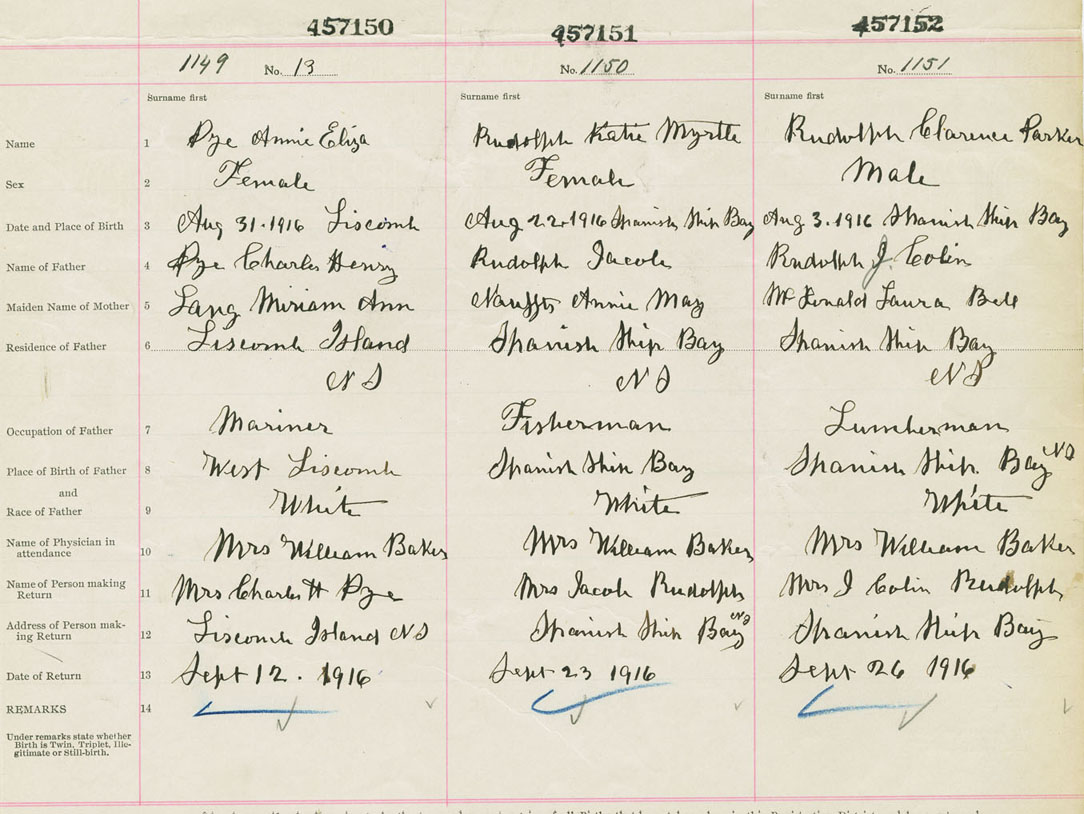 457150 457151 457152
1149 No. 13 No. 1150 No. 1151
Surname first Surname first Surname first
Name 1 Pye Annie Eliza Rudolph Katie Myrtle Rudolph Clarence Parker
Sex 2 Female Female Male
Date and Place of Birth 3 Aug 31-1916 Liscomb Aug 22-1916 Spanish Ship Bay Aug 3.1916 Spanish Ship Bay
Name of Father 4 Pye Charles Henry Rudolph Jacob Rudolph J. Colin
Maiden Name of Mother 5 Lang Miriam Ann Nauffts Annie May McDonald Laura Bell
Residence of Father 6 Liscomb Island Spanish Ship Bay Spanish Ship Bay
NS NS NS
Occupation of Father 7 Mariner Fisherman Lumberman
Place of Birth of Father 8 West Liscomb Spanish Ship Bay Spanish Ship. Bay NS
and
Race of Father 9 White White White
Name of Physician in
attendance 10 Mrs William Baker Mrs William Baker Mrs William Baker
Name of Person making
Return 11 Mrs Charles H Pye Mrs Jacob Rudolph Mrs J Colin Rudolph
Address of Person mak-
ing Return 12 Liscomb Island NS Spanish Ship Bay NS Spanish Ship Bay
Date of Return 13 Sept 12. 1916 Sept 23 1916 Sept 26 1916
REMARKS 14
Under remarks state whether
Birth is Twin, Triplet, Ille-
gitimate or Still-birth.